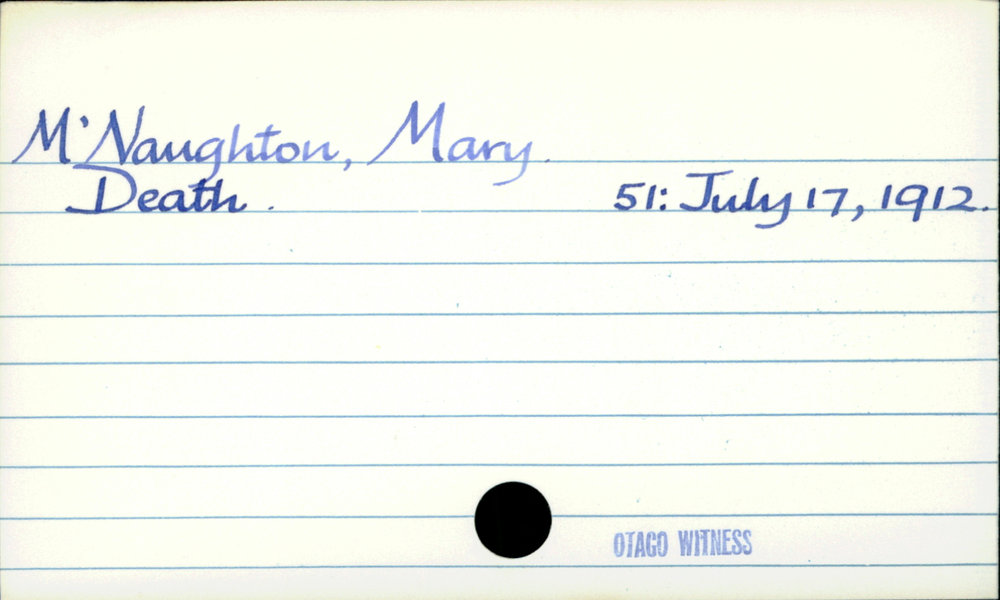 M'Naughton, Mary.
Death. 51: July 17, 1912.
OTAGO WITNESS